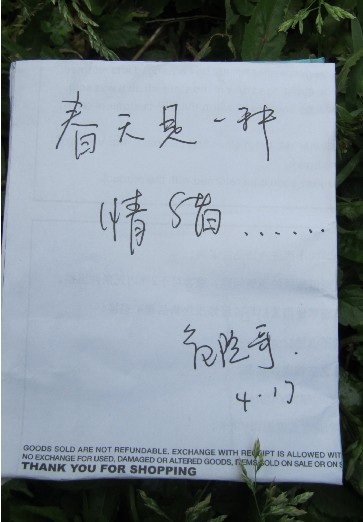 春天是一种
情绪......
脸哥.
4.17
GOODS SOLD ARE NOT REFUNDABLE. EXCHANGE WITH RECEIPT IS ALLOWED WIT
NO EXCHANGE FOR USED, DAMAGED OR ALTERED GOODS, ITEMS SOLD ON SALE OR ON S
THANK YOU FOR SHOPPING